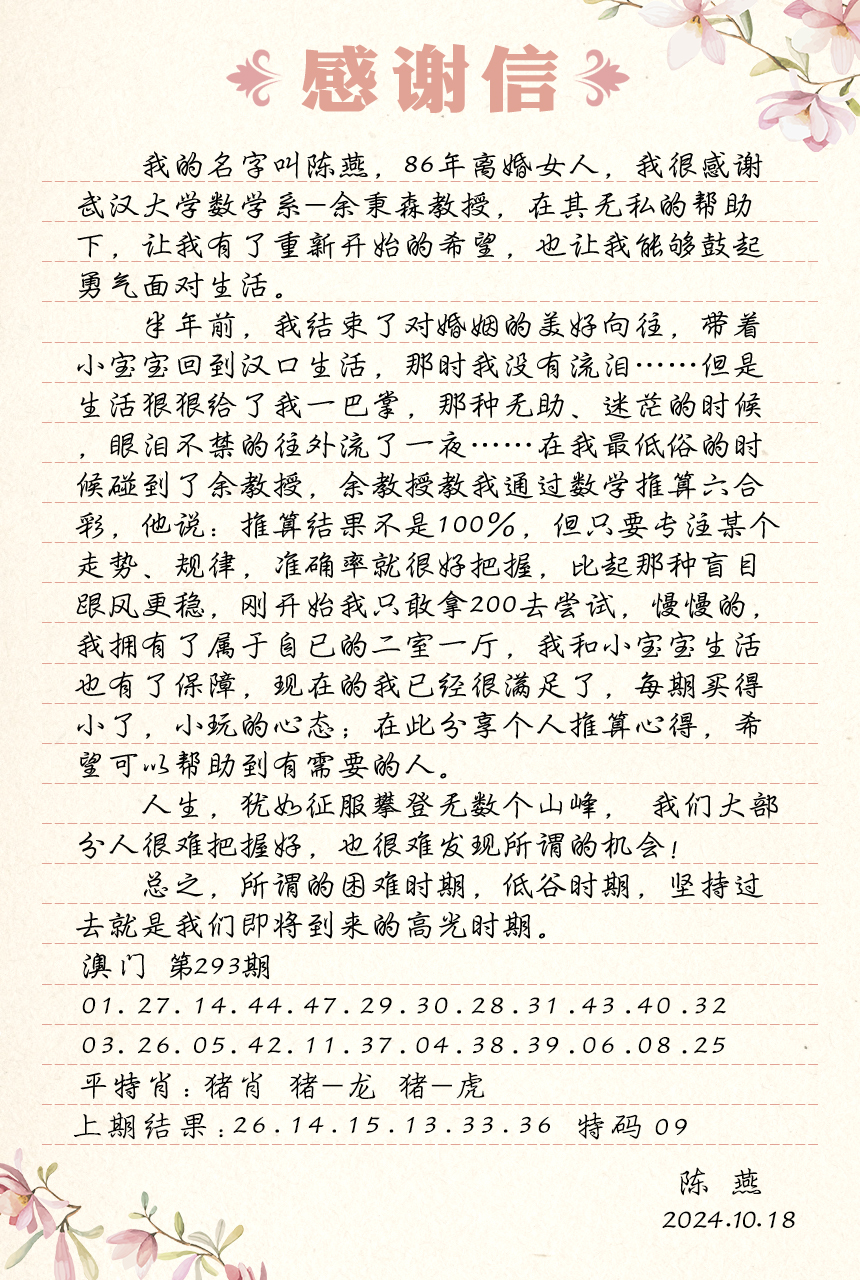 感谢信
我的名字叫陈燕，86年离婚女人，我很感谢
武汉大学数学系—余秉森教授，在其无私的帮助
下，让我有了重新开始的希望，也让我能够鼓起
勇气面对生活。
半年前，我结束了对婚姻的美好向往，带着
小宝宝回到汉口生活，那时我没有流泪……但是
生活狠狠给了我一巴掌，那种无助、迷茫的时候
，眼泪不禁的往外流了一夜……在我最低俗的时
候碰到了余教授，余教授教我通过数学推算六合
彩，他说：推算结果不是100%，但只要专注某个
走势、规律，准确率就很好把握，比起那种盲目
跟风更稳，刚开始我只敢拿200去尝试，慢慢的，
我拥有了属于自已的二室一厅，我和小宝宝生活
也有了保障，现在的我已经很满足了，每期买得
小了，小玩的心态；在此分享个人推算心得，希
望可以帮助到有需要的人。
人生，犹如征服攀登无数个山峰， 我们大部
分人很难把握好，也很难发现所谓的机会！
总之，所谓的困难时期，低谷时期，坚持过
去就是我们即将到来的高光时期。
澳门 第293期
01.27.14.44.47.29.30.28.31.43.40.32
03.26.05.42.11.37.04.38.39.06.08.25
平特肖：猪肖 猪—龙 猪—虎
上期结果：26.14.15.13.33.36 特码 09
陈 燕
2024.10.18